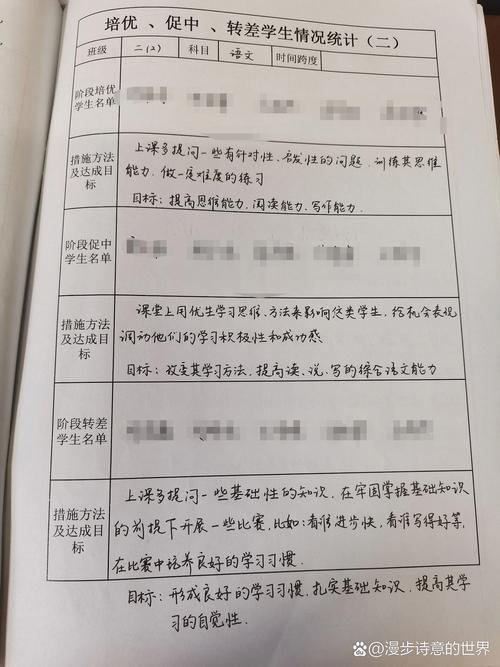 培优 、促中 、转差学生情况统计（二）
班级 二（2） 科目 语文 时间跨度
阶段培优
学生名单
措施方法
及达成目
标
上课多提问一些有针对性、启发性的问题，训练其思维
能力，做一定难度的练习
目标：提高思维能力，阅读能力、写作能力．
阶段促中
学生名单
措施方法
及达成目
标
课堂上用优生学习思维、方法来影响这类学生，给机会表现
调动他们的学习积极性和成功感
目标：改变其学习方法，提高读、说、写的综合语文能力
阶段转差
学生名单
措施方法
及达成目
标
上课多提问一些基础性的知识，在牢固掌握基础知识
的前提下开展一些比赛，比如：看谁进步快，看谁写得好等，
在比赛中培养良好的学习习惯．
目标：形成良好的学习习惯，扎实基础知识，提高其学
习的自觉性．
漫步诗意的世界